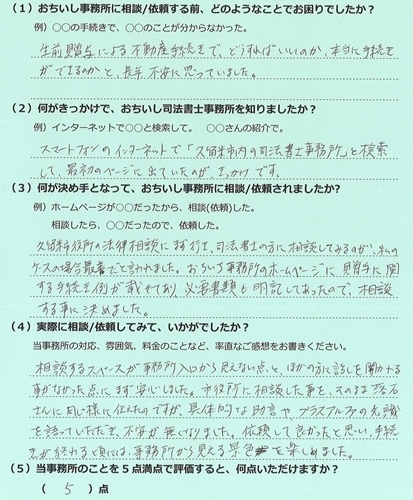 （１）おちいし事務所に相談/依頼する前、どのようなことでお困りでしたか？
例）○○の手続きで、○○のことが分からなかった。
生前贈与による不動産手続きで、どうすればいいのか、本当に手続き
ができるのかと、長年不安に思っていました。
（２）何がきっかけで、おちいし司法書士事務所を知りましたか？
例）インターネットで○○と検索して。 ○○さんの紹介で。
スマートフォンのインターネットで「久留米市内の司法書士事務所」と検索
して、最初のページに出ていたのが、きっかけです。
（３）何が決め手となって、おちいし事務所に相談/依頼されましたか？
例）ホームページが○○だったから、相談(依頼)した。
相談したら、○○だったので、依頼した。
久留米市役所の法律相談にまず行き、司法書士の方に相談してみるのが、私の
ケースの場合最善だと言われました。おちいし事務所のホームページに、贈与に関
する手続き例が載せてあり、必要書類も明記してあったので、相談
する事に決めました。
（４）実際に相談/依頼してみて、いかがでしたか？
当事務所の対応、雰囲気、料金のことなど、率直なご感想をお書きください。
相談するスペースが事務所入口から見えない点と、ほかの方に話しを聞かれる
事がなかった点にまず安心しました。市役所に相談した事を、そのまま落石
さんに同じ様に伝えたのですが、具体的な助言や、プラスアルファの知識
を語っていただき、不安が無くなりました。依頼して良かったと思い、手続
きが終わる頃には、事務所から見える景色を楽しめました。
（５）当事務所のことを５点満点で評価すると、何点いただけますか？
（ ５ ）点